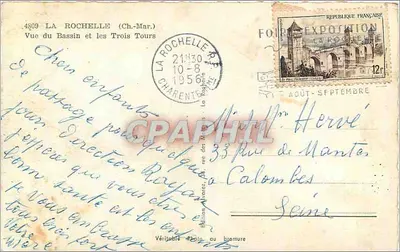 4809 LA ROCHELLE (Ch.-Mar.)
Vue du Bassin et les Trois Tours
LA ROCHELLE R.P.
21H30
10-8
1958
CHARENTE-MME
FOIRE EXPOSITION
AOUT-SEPTEMBRE
REPUBLIQUE FRANÇAISE
12F
CPAPHIL
Chers enfants
de passage pour quelques
jours direction Royan
j'espère que vous êtes en
bonne santé et les enfants
je vous embrasse
tous bien fort
Mme Hervé
33 Rue de Mantes
a Colombes
Seine
Véritable au bromure